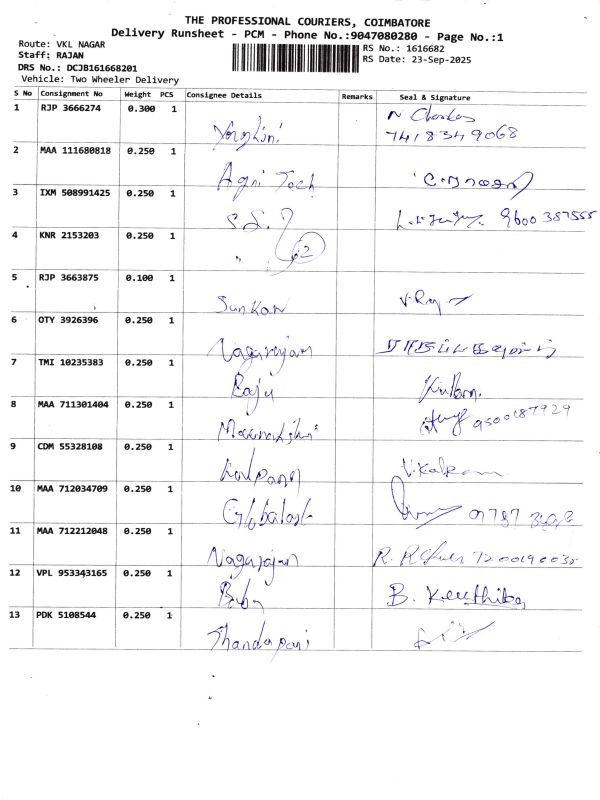 THE PROFESSIONAL COURIERS, COIMBATORE
Delivery Runsheet - PCM - Phone No.:9047080280 - Page No.:1
Route: VKL NAGAR
Staff: RAJAN
DRS No.: DCJB161668201
Vehicle: Two Wheeler Delivery
RS No.: 1616682
RS Date: 23-Sep-2025
S No Consignment No Weight PCS Consignee Details Remarks Seal & Signature
1 RJP 3666274 0.300 1
7418349068
2 MAA 111680818 0.250 1 Agni Tech
3 IXM 508991425 0.250 1 S.S. 9600387555
4 KNR 2153203 0.250 1 " 2
5 RJP 3663875 0.100 1 Sankar
6 OTY 3926396 0.250 1 Nagarajan
7 TMI 10235383 0.250 1 Raju
8 MAA 711301404 0.250 1 Meenakshi 9500187929
9 CDM 55328108 0.250 1 Kalpana
10 MAA 712034709 0.250 1 9787
11 MAA 712212048 0.250 1 Nagarajan R.
12 VPL 953343165 0.250 1 B. Keerthika
13 PDK 5108544 0.250 1 Thandapani